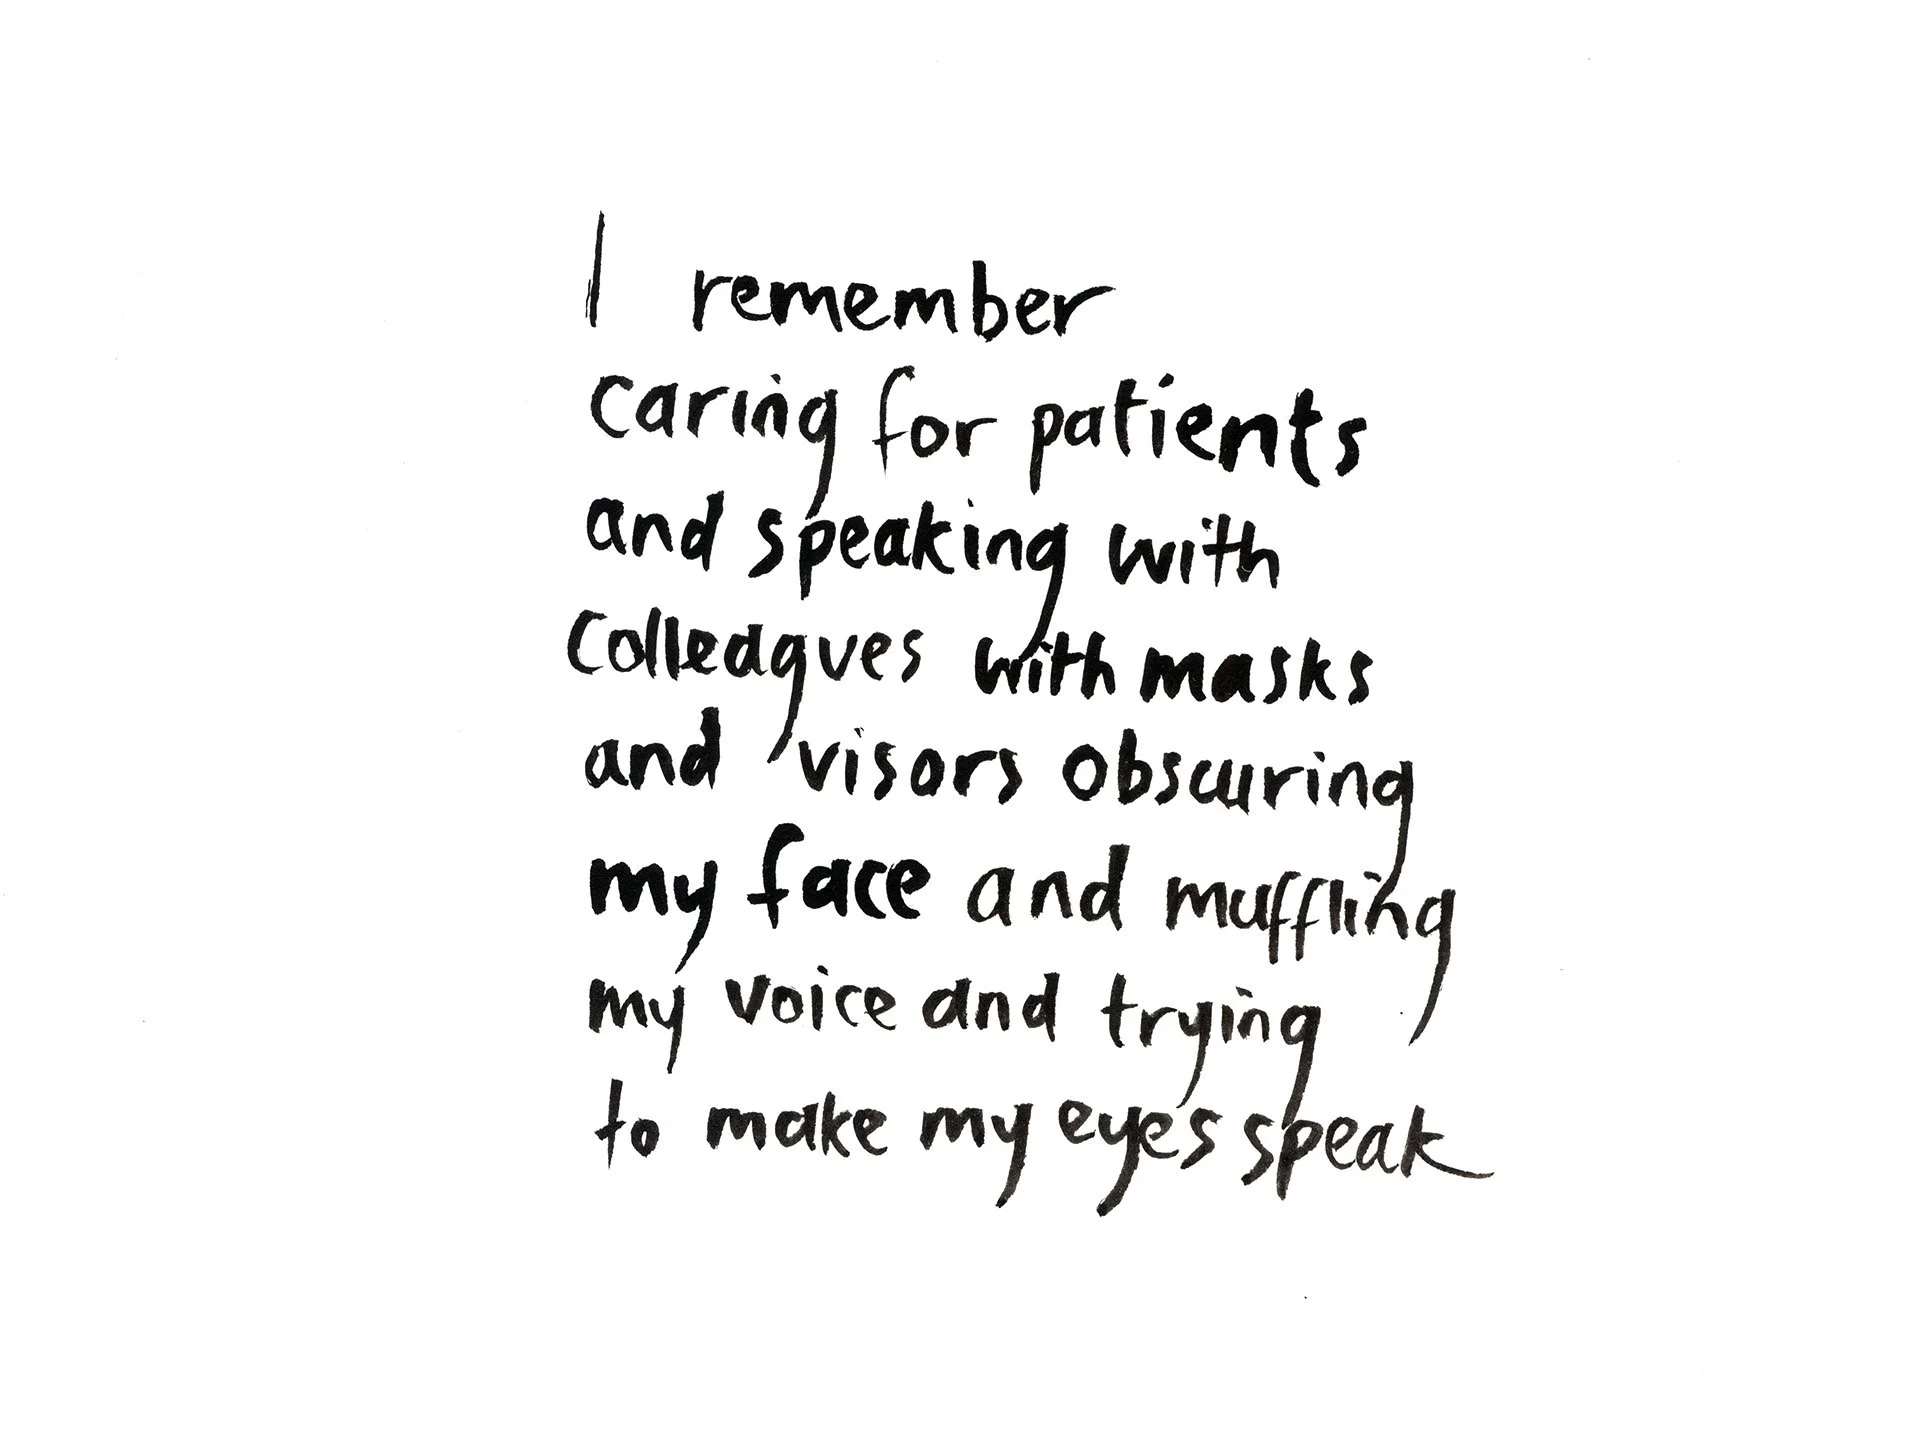 I remember
caring for patients
and speaking with
colleagues with masks
and visors obscuring
my face and muffling
my voice and trying
to make my eyes speak